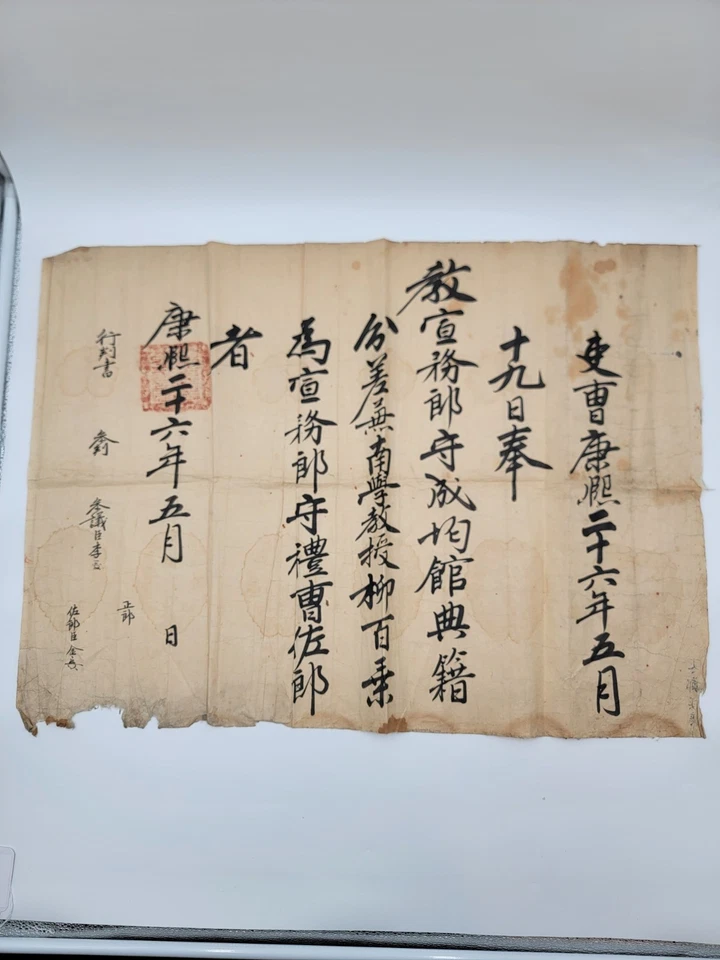 吏曹康熙二十六年五月
十九日奉
教宣務郎守成均館典籍
兼南學教授柳百乗
為宣務郎守禮曹佐郎
者
康熙二十六年五月 日
行判書
參判
參議臣李
正郎
佐郎臣金